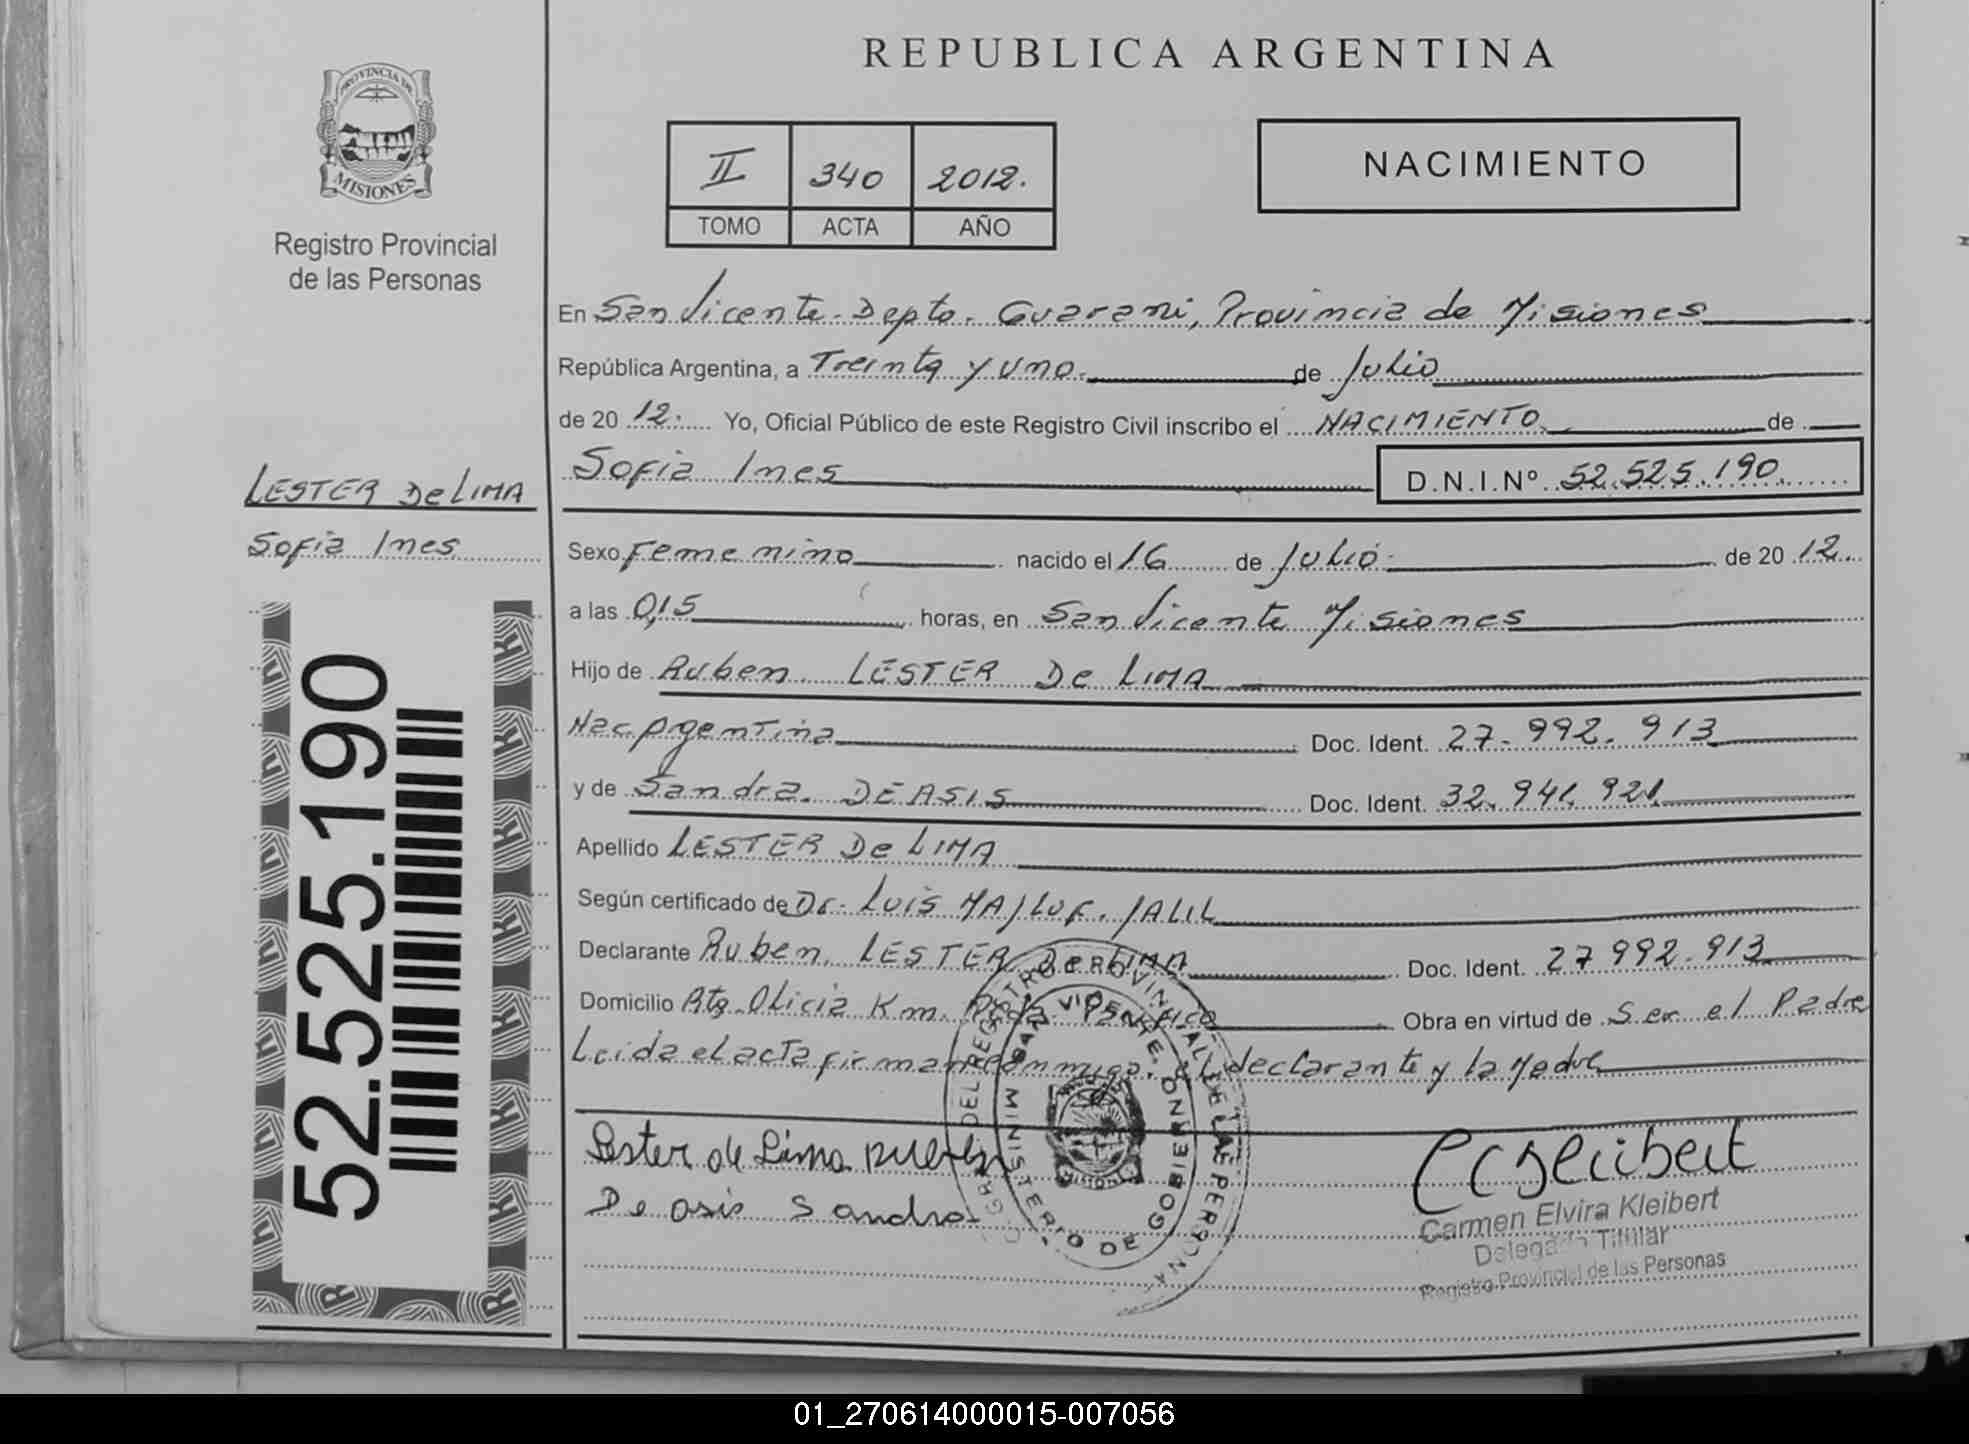 REPUBLICA ARGENTINA
PROVINCIA DE
MISIONES
Registro Provincial
de las Personas
II 340 2012.
TOMO ACTA AÑO
NACIMIENTO
En San Vicente - Depto. Guarani, Provincia de Misiones
República Argentina, a Treinta y uno. de Julio
de 20 12. Yo, Oficial Público de este Registro Civil inscribo el NACIMIENTO de
Sofia Ines D.N.I.Nº 52.525.190.
LESTER De LIMA
Sofia Ines
52.525.190
Sexo Femenino nacido el 16 de JULIO de 20 12
a las 0,15 horas, en San Vicente Misiones
Hijo de Ruben LESTER De LIMA
Nac Argentina Doc. Ident. 27.992.913
y de Sandra DEASIS Doc. Ident. 32.941.921
Apellido LESTER De LIMA
Según certificado de Dr. Luis MAJLUF JALIL
Declarante Ruben LESTER De LIMA Doc. Ident. 27 992.913
Domicilio Rta. Olicia Km. Pacifico Obra en virtud de Ser el Padre
Leida el acta firman conmigo, el declarante y la Madre
Lester de Lima Ruben
De asis Sandra
REGISTRO PROVINCIAL DE LAS PERSONAS
SAN VICENTE
MINISTERIO DE GOBIERNO
MISIONES
Carmen Elvira Kleibert
Delegada Titular
Registro Provincial de las Personas
01_270614000015-007056